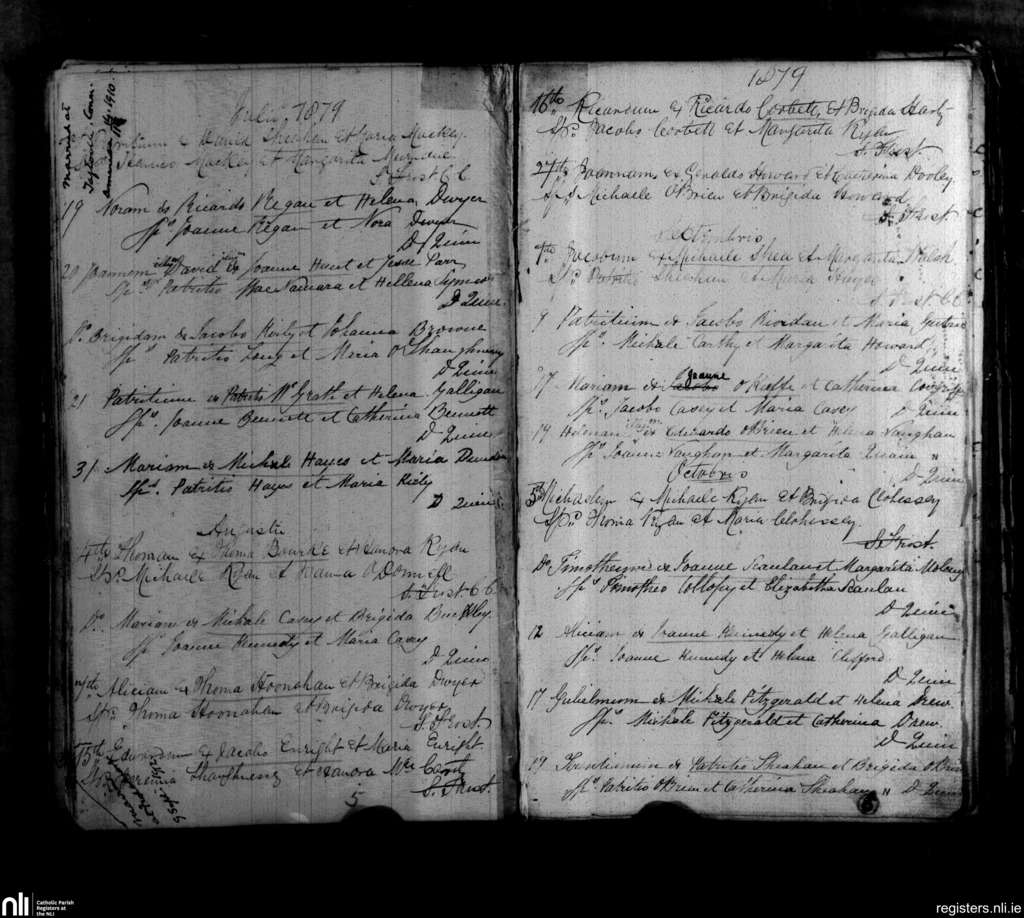 Married at
Conn.
1910.
July, 1879
David Sheehan et Maria Mackey
Mackey et Margarita
S. Frost C.C.
19 Noram ex Ricardo Regan et Helena Dwyer
Sps. Joanne Regan et Nora Dwyer
D Quin
20 Joannem David ex Joanne Hunt et Parr
Sps. Patritio MacNamara et Hellena
D Quin.
Do. Brigidam ex Jacobo Kiely et Johanna Browne
Sps. Patritio Long et Maria O'Shaughnessy
D Quin
21 Patritium ex Patritio McGrath et Helena Galligan
Sps. Joanne Bennett et Catherina Bennett
D Quin
31 Mariam ex Michale Hayes et Maria
Sps. Patritio Hayes et Maria Kiely
D Quin
Augusti
4th Thomam ex Thoma Bourke et Hanora Ryan
Sps. Michaele Ryan et Joanna O'Donnell
S. Frost C.C.
Do. Mariam ex Michale Casey et Brigida Buckley.
Sps. Joanne Kennedy et Maria Casey
D Quin
Aliciam ex Thoma Hoonahan et Brigida Dwyer
Sps. Thoma Hoonahan et Brigida Dwyer
S. Frost
15th ex Jacobo Enright et Maria Enright
et Hanora
S. Frost.
5
1879
16th Ricardum ex Ricardo Corbett et Brigida Harty
Sps. Jacobo Corbett et Margarita Ryan
S. Frost.
27th Joannam ex Geraldo Howard et Catherina Dooley.
Sps. Michaele O'Brien et Brigida Howard
S. Frost
7th Jacobum ex Michaele Shea et Margarita Walsh
Sps. Patritio Sheehan et Maria
S. Frost C.C.
9 Patritium ex Jacobo Riordan et Maria
Sps. Michale Carthy et Margarita Howard
D Quin
17 Mariam ex Joanne O'Keeffe et Catherina
Sps. Jacobo Casey et Maria Casey D Quin
19 Helenam ex Edwardo O'Brien et Helena Vaughan
Sps. Joanne Vaughan et Margarita Quain "
D Quin
Octobris
5th Michaelem ex Michaele Ryan et Brigida Clohessey
Sps. Thoma Ryan et Maria Clohessey.
S. Frost.
Do Timotheum ex Joanne Scanlan et Margarita Molony
Sps. Timotheo Collopy et Elizabetha Scanlan
D Quin
12 Aliciam ex Joanne Kennedy et Helena Galligan
Sps. Joanne Kennedy et Helena Clifford
D Quin
17 Gulielmum ex Michale Fitzgerald et Helena Drew.
Sps. Michale Fitzgerald et Catherina Drew.
D Quin
19 ex Patritio Sheahan et Brigida O'Brien
Sps. Patritio O'Brien et Catherina Sheahan " D Quin
nli Catholic Parish
Registers at
the NLI
registers.nli.ie